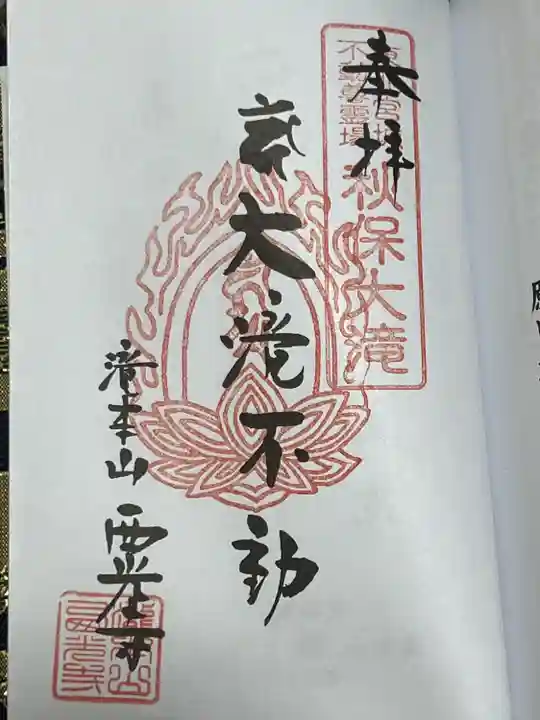 奉拝
不動尊霊場
秋保大滝
大滝不動
滝本山
西光寺